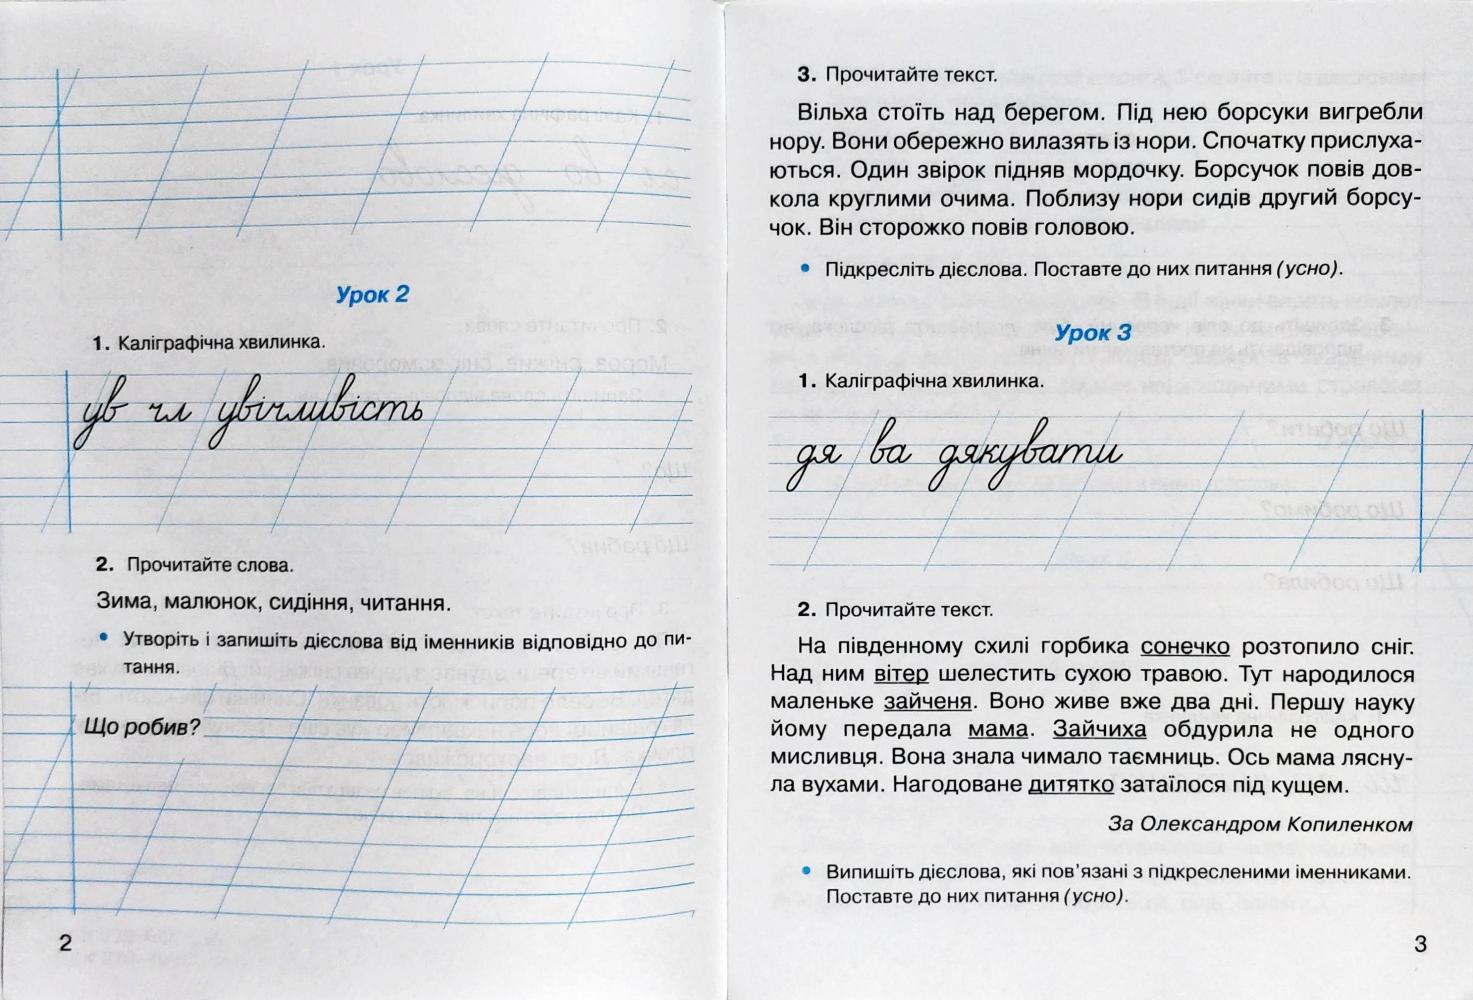 Урок 2
1. Каліграфічна хвилинка.
ув чл увічливість
2. Прочитайте слова.
Зима, малюнок, сидіння, читання.
• Утворіть і запишіть дієслова від іменників відповідно до пи-
тання.
Що робив?
2
3. Прочитайте текст.
Вільха стоїть над берегом. Під нею борсуки вигребли
нору. Вони обережно вилазять із нори. Спочатку прислуха-
ються. Один звірок підняв мордочку. Борсучок повів дов-
кола круглими очима. Поблизу нори сидів другий борсу-
чок. Він сторожко повів головою.
• Підкресліть дієслова. Поставте до них питання (усно).
Урок 3
1. Каліграфічна хвилинка.
дя ва дякувати
2. Прочитайте текст.
На південному схилі горбика сонечко розтопило сніг.
Над ним вітер шелестить сухою травою. Тут народилося
маленьке зайченя. Воно живе вже два дні. Першу науку
йому передала мама. Зайчиха обдурила не одного
мисливця. Вона знала чимало таємниць. Ось мама лясну-
ла вухами. Нагодоване дитятко затаїлося під кущем.
За Олександром Копиленком
• Випишіть дієслова, які пов’язані з підкресленими іменниками.
Поставте до них питання (усно).
3